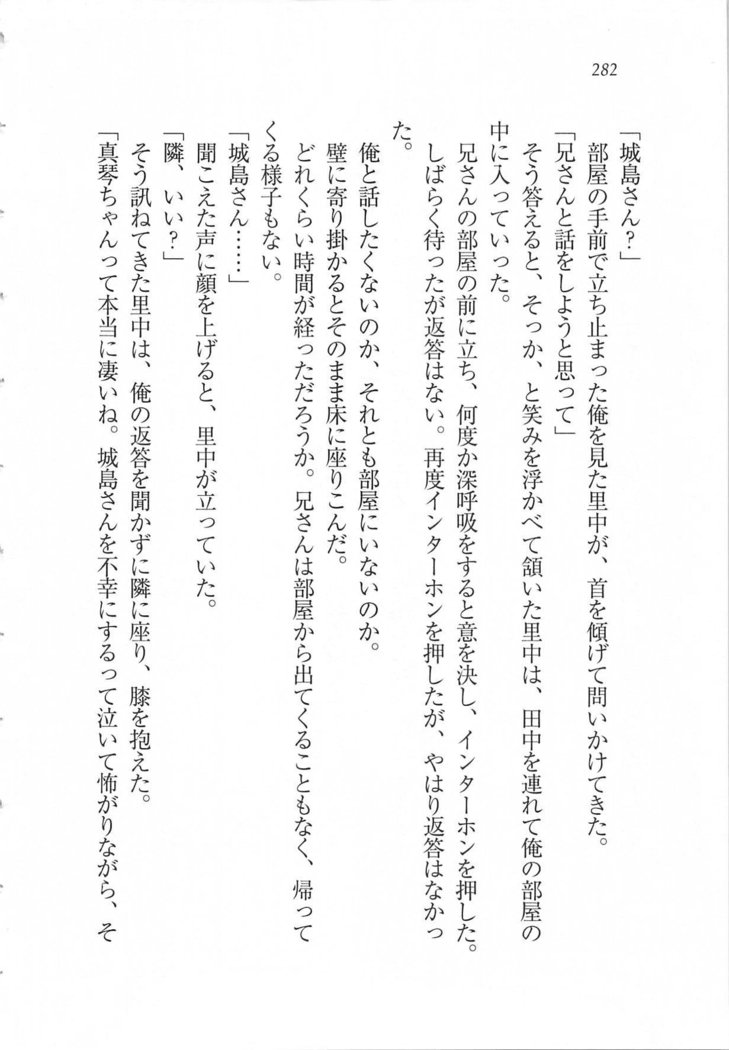 282
「城島さん?」
部屋の手前で立ち止まった俺を見た里中が、首を傾げて問いかけてきた。
「兄さんと話をしようと思って」
そう答えると、そっか、と笑みを浮かべて頷いた里中は、田中を連れて俺の部屋の
中に入っていった。
兄さんの部屋の前に立ち、何度か深呼吸をすると意を決し、インターホンを押した。
しばらく待ったが返答はない。再度インターホンを押したが、やはり返答はなかっ
た。
俺と話したくないのか、それとも部屋にいないのか。
壁に寄り掛かるとそのまま床に座りこんだ。
どれくらい時間が経っただろうか。兄さんは部屋から出てくることもなく、帰って
くる様子もない。
「城島さん……」
聞こえた声に顔を上げると、里中が立っていた。
「隣、いい?」
そう訊ねてきた里中は、俺の返答を聞かずに隣に座り、膝を抱えた。
「真琴ちゃんって本当に凄いね。城島さんを不幸にするって泣いて怖がりながら、そ